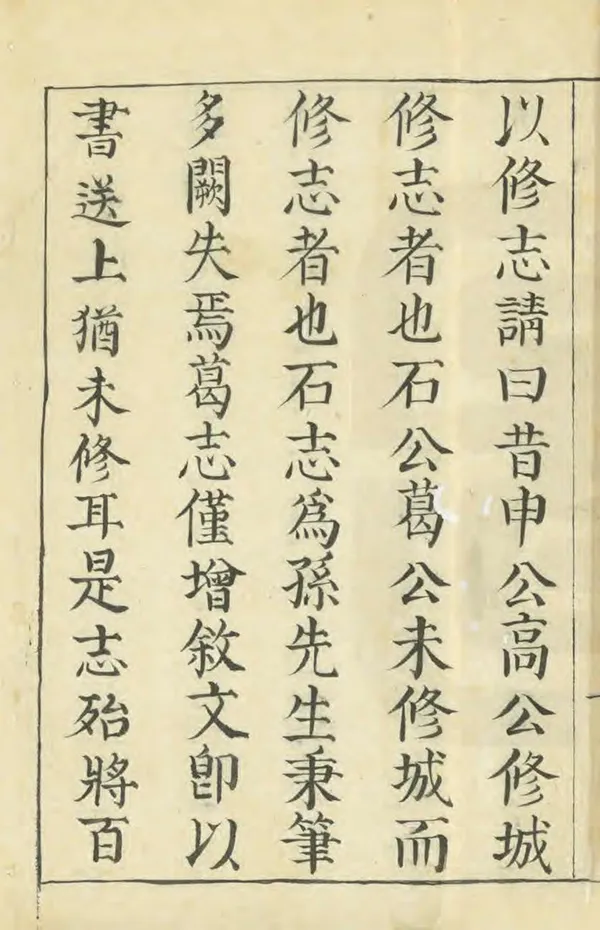 以修志請曰昔申公高公修城
修志者也石公葛公未修城而
修志者也石志為孫先生秉筆
多闕失焉葛志僅增敘文卽以
書送上猶未修耳是志殆將百